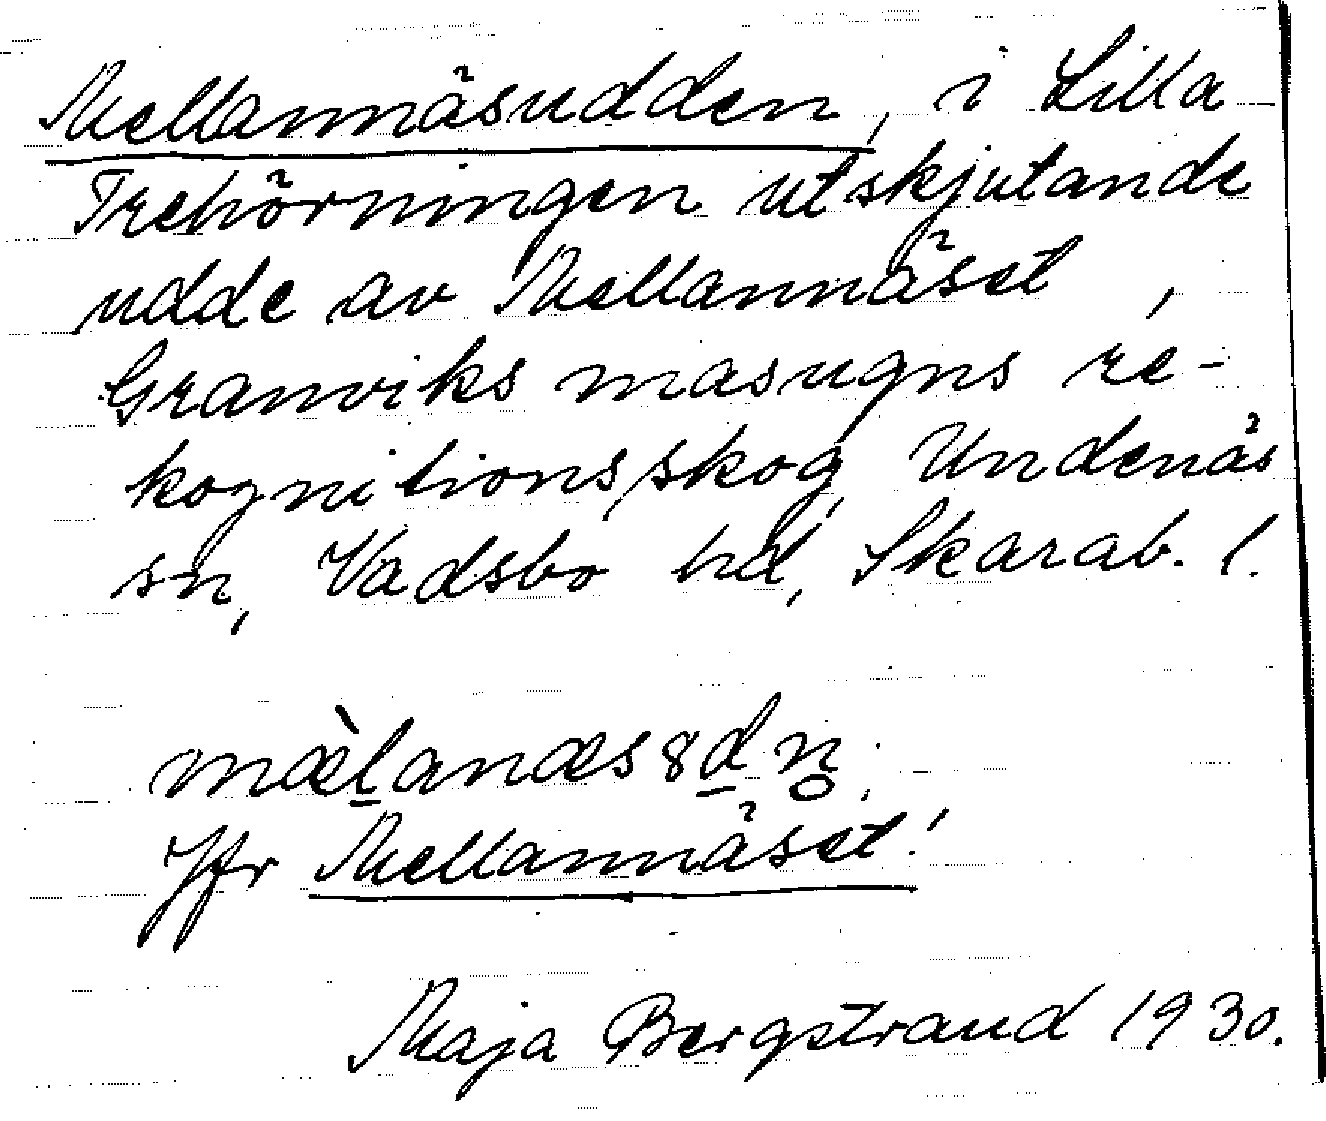 Mellannäsudden, i Lilla
Trehörningen utskjutande
udde av Mellannäset,
Granviks masugns re-
kognitionsskog, Undenäs
sn, Vadsbo hd, Skarab. l.
mæ̀l̠anæs8d̠n̥.
Jfr Mellannäset!
Maja Bergstrand 1930.